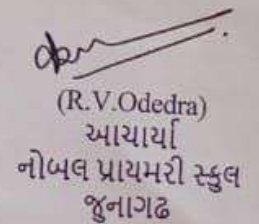 (R.V.Odedra)
આચાર્યા
નોબલ પ્રાયમરી સ્કુલ
જુનાગઢ